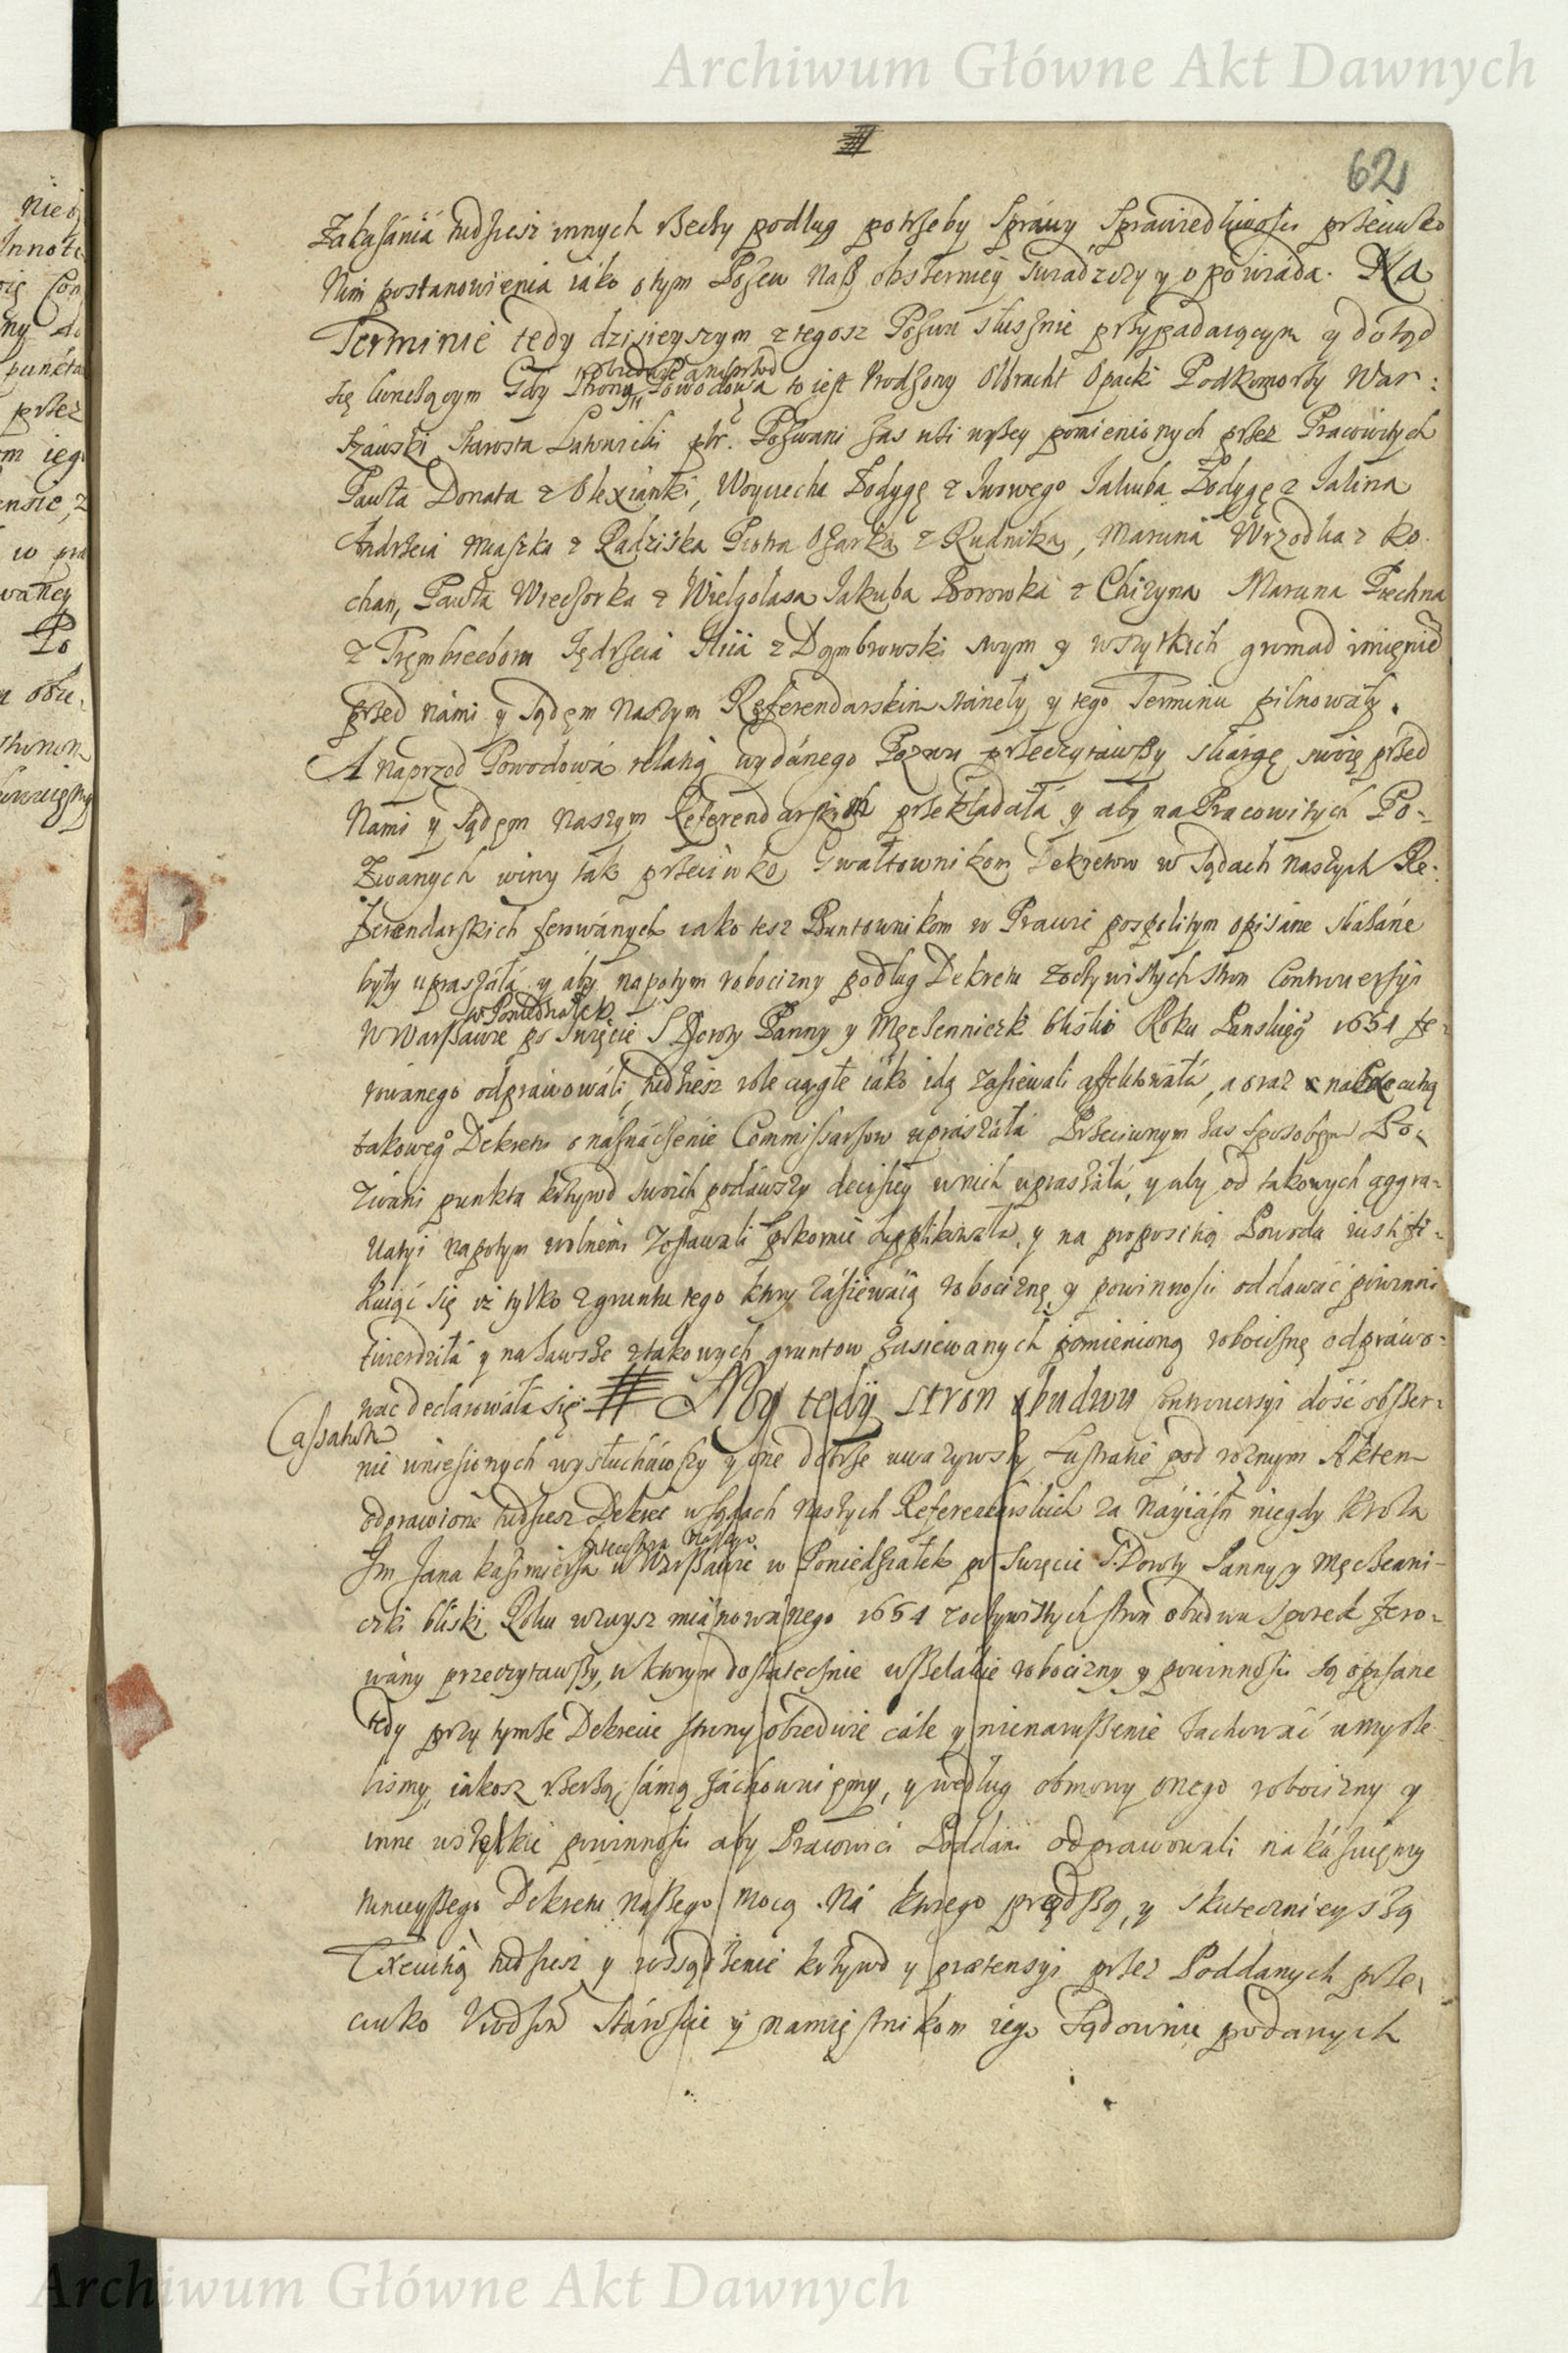 Archiwum Główne Akt Dawnych
62
Zakazánia tudziesz innych rzeczy podług potrzeby Spráwy Spráwiedliwości przeciwko
Nim postanowienia iáko o tym Pozew Nasz obszerniey Swiadczy y opowiáda. Na
Terminie tedy dzisieyszym z tegosz Pozwu słusznie przypadaiącym y dotąd
się Gdy obiedwie á naprzod
Strona Powodowa to iest Urodzony Olbracht Opacki Podkomorzy War:
szawski Starosta Latowicki Pozwani zas wyszey pomienionych przez Pracowitych
Pawła Donata z Olexianki, Woyciecha Zodygę z Iwowego Iakuba Zodygę z Ialina
Andrzeia Miaszka z Radziska Piotra Ozarka z Rudnika, Marcina Wrzodka z Ko.
chan, Pawła Wieczorka z Wielgolasa Iakuba Borowka z Chizyna Marcina Piechna
z Tręmbieebora Iędrzeia z Dąmbrowski swym y wszytkich gromad imięniẽ
przed námi y Sądęm Naszym Referendarskim stánęły y tego Terminu pilnowały.
A naprzod Powodowá relatią wydánego Pozwu przeczytáwszy skárgę swoię przed
Nami y Sądęm Naszym Referendarskim przekładáłá y aby na Pracowitych Po-
Zwanych winy iak przeciwko Gwałtownikom Dekretow w Sądach Naszych Re-
ferendarskich ferowánych iako tesz Buntownikom w Prawie pospolitym opisáne skázáne
były upraszáłá y áby napotym robocizny podług Dekretu z oczywistych stron Controwersyi
w Poniedziałek
W Warszawie po Swięcie S Doroty Panny y Męczenniczk blisko Roku Panskiego 1654 fe-
rowánego odpráwowáli, tudziesz role ciągłe iáko idą zásiewáli affektowáłá, a oraz na Executią
takoweg° Dekretu o náznáczenie Commissarzow upraszáłá Przeciwnym zas sposobem Po-
zwani punkta krzywd swoich podáwszy decisiey w nich upraszáłá, y aby od takowych aggra-
uatyi napotym wolnemi zostawali pokornie supplikowáłá, y na propositią Powoda iustifi-
kuiąc się isz tylko z gruntu tego ktory zásiewáią robociznę y powinnosci oddawác powinni
twierdziłá y na zawsze z takowych gruntow zasiewanych pomienioną robociznę odpráwo-
wac declarowáłá się # My tedy stron obudwu Controuersyi dość obszer-
Cassatum
nie wniesionych wysłucháwszy y one dobrze uwazywszy Lustratie pod roznym Aktem
odprawione tudziesz Dekret w Sądach Naszych Referendarskich za Náyiásñ niegdy Krola
Antecessora Naszego
Jm Jana Kazimierza w Warszawie w Poniedziałek po Swięcie S. Doroty Panny y Męczenni-
czki bliski Roku wzwysz miánowánego 1654 z oczywistych stron obudwu Sporek fero-
wány przeczytawszy, w ktorym dostatecznie wszelákie robocizny y powinnosci są opisane
tedy przy tymze Dekrecie strony obiedwie cále y nienaruszenie zachować umysle-
lismy, iakosz rzeczą sámą záchowuięmy, y według obmowy onego robocizny y
inne wszelkie powinnosci aby Pracowici Poddáni odprawowali nakázuięmy
ninieyszego Dekretu Naszego mocą. Ná ktorego prędszą, y skutecznieyszą
Executią tudziesz y rozsądzenie krzywd y praetensyi przez Poddanych prze-
ciwko Urodzõ Stároscie y namięstnikom iego Sądownie podanych
Archiwum Główne Akt Dawnych